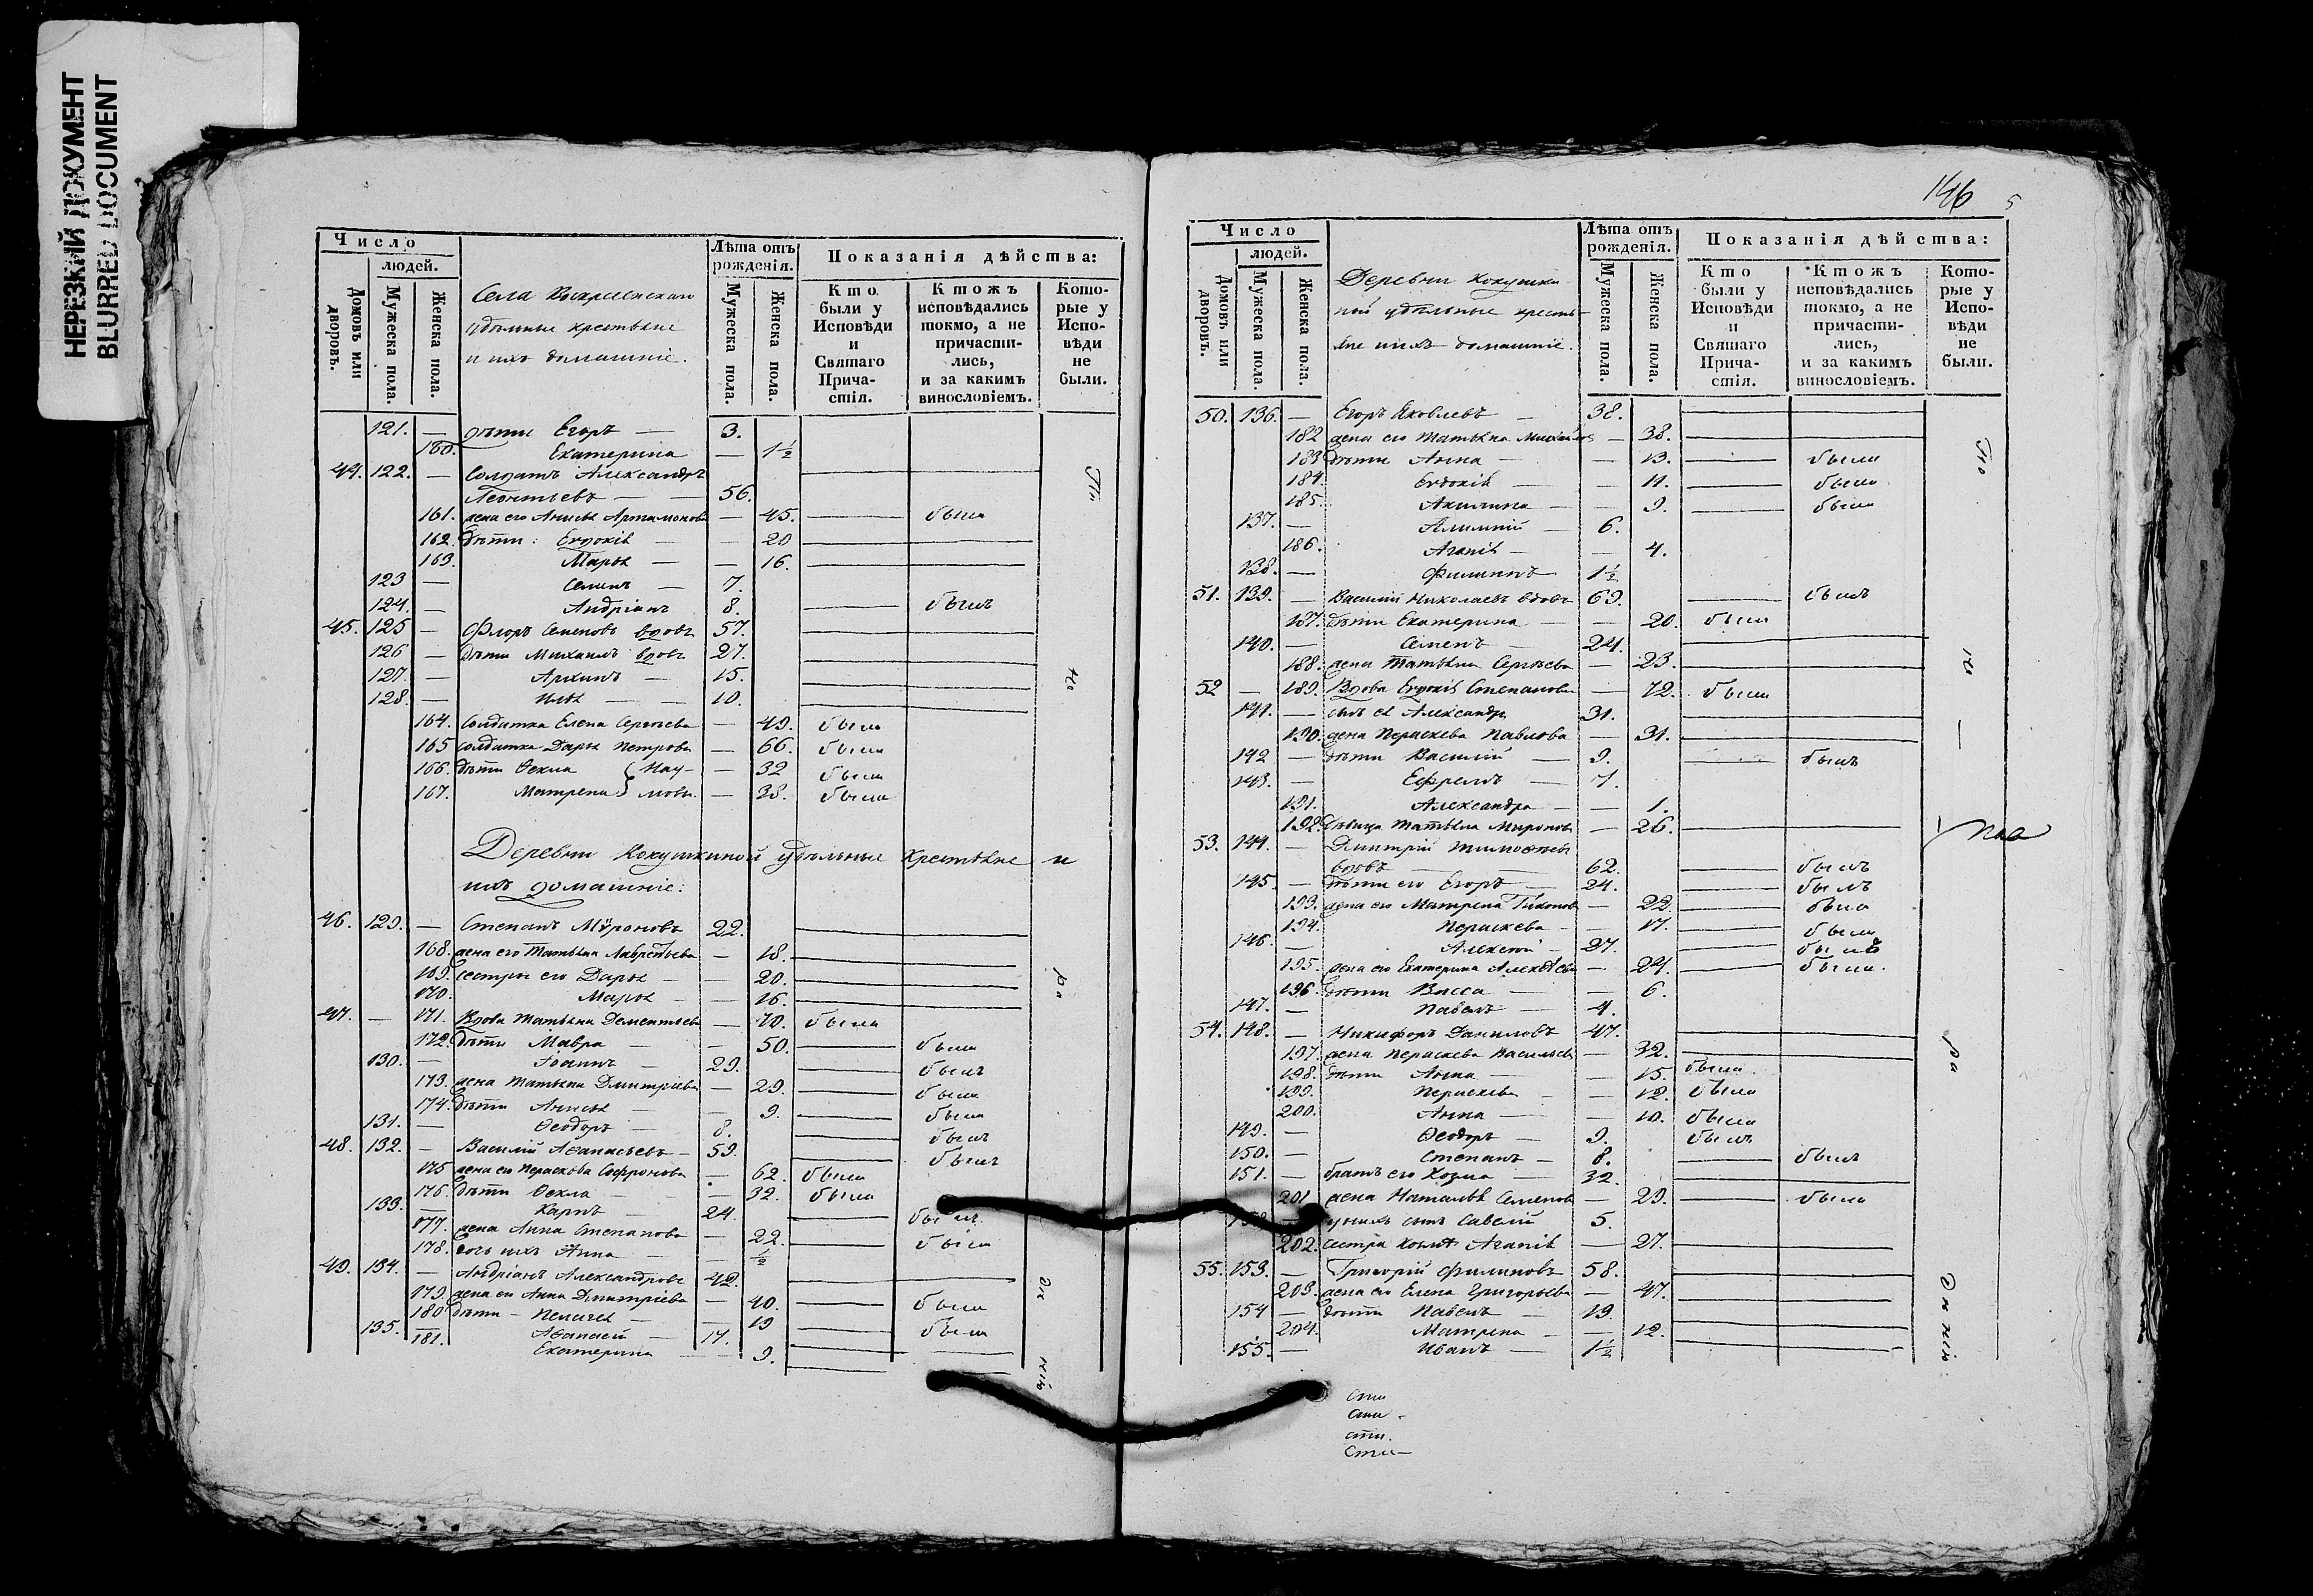 НЕРЕЗКИЙ ДОКУМЕНТ
BLURRED DOCUMENT
Число
людей.
Домовъ или дворовъ.
Мужеска пола.
Женска пола.
Села Воскресенскаго
удѣльные крестьяне
и ихъ домашніе.
Лѣта отъ рожденія.
Мужеска пола.
Женска пола.
Показанія дѣйства:
Кто были у Исповѣди и Святаго Причастія.
Ктожъ исповѣдались токмо, а не причастились, и за какимъ винословіемъ.
Которые у Исповѣди не были.
121. — дѣти Егоръ — 3.
180. Екатерина — 1½
44. 122. — Солдатъ Александръ
Леонтьевъ — 56.
161. жена его Анисья Артамонова — 45. была
162. дѣти: Евдокія — 20
163. Марья — 16.
123 — Семенъ — 7.
124. — Андріанъ 8. былъ
45. 125 — Флоръ Семеновъ вдовъ 57.
126 — дѣти Михаилъ вдовъ 27.
127. — Архипъ — 15.
128. — Илья — 10.
164. Солдатка Елена Сергѣева — 49. была
165 солдатка Дарья Петрова — 66. была
166. дѣти Ѳекла } Нау- — 32 была
167. Матрена } мовы. — 38. была
Деревни Кокушкиной удѣльные крестьяне и
ихъ домашніе:
46. 129. — Степанъ Мѵроновъ 22.
168. жена его Татьяна Лаврентьева — 18.
169. сестры его Дарья — 20.
170. Марья — 16.
47. — 171. Вдова Татьяна Дементьева — 70. была
172. дѣти Мавра — 50. была
130. — Іоаннъ — 29. былъ
173. жена Татьяна Дмитріева — 29. была
174. дѣти Анисья — 9. была
131. — Ѳеодоръ — 8. былъ
48. 132. — Василій Аѳанасьевъ — 59. былъ
175 жена его Параскева Софронова — 62. была
176. дѣти Ѳекла — 32. была
133. — Карпъ — 24. былъ
177. жена Анна Степанова — 22. была
178. дочь ихъ Анна — ½
49. 134. — Андріанъ Александровъ 42.
179. жена его Анна Дмитріева — 40. была
180 дѣти — Пелагея — 19 была
135. — Аѳанасій — 17.
181. Екатерина — 9.
146
5
Число
людей.
Домовъ или дворовъ.
Мужеска пола.
Женска пола.
Деревни Кокушки-
ной удѣльные кресть-
яне и ихъ домашніе.
Лѣта отъ рожденія.
Мужеска пола.
Женска пола.
Показанія дѣйства:
Кто были у Исповѣди и Святаго Причастія.
Ктожъ исповѣдались токмо, а не причастились, и за какимъ винословіемъ.
Которые у Исповѣди не были.
50. 136. — Егоръ Яковлевъ — 38.
182 жена его Татьяна Михайлова — 38.
183 дѣти Анна — 13. была
184. Евдокія — 11. была
185. Акилина — 9. была
137. — Алимпій — 6.
186. Агапія — 4.
138. — Филиппъ — 1½
51. 139. — Василій Николаевъ вдовъ 69. былъ
187. дѣти Екатерина — 20. была
140. — Семенъ — 24.
188. жена Татьяна Сергѣева — 23.
52 — 189. Вдова Евдокія Степанова — 72. была
141. — сынъ ея Александръ 31.
190. жена Параскева Павлова — 31.
142 — дѣти Василій — 9. былъ
143. — Ефремъ — 7.
191. Александра — 1.
192. Дѣвица Татьяна Миронова — 26.
53. 144. — Дмитрій Тимоѳеевъ
вдовъ 62. былъ
145. — дѣти его Егоръ — 24. былъ
193. жена его Матрена Тихонова — 22. была
194. Параскева — 17. была
146. — Алексѣй — 27. былъ
195. жена его Екатерина Алексѣева — 24. была.
196. дѣти Васса — 6.
147. — Павелъ — 4.
54. 148. — Никифоръ Даниловъ 47.
197. жена Параскева Васильева — 32.
198. дѣти Анна — 15. была.
199. Параскева — 12. была
200. Анна — 10. была
149. — Ѳеодоръ — 9. былъ
150. — Степанъ — 8. былъ
151. — братъ его Козма — 32.
201 жена Наталья Семенова — 29. была
152. — у нихъ сынъ Савелій 5.
202. сестра Козмы Агапія — 27.
55. 153. — Григорій Филиповъ 58.
203. жена его Елена Григорьева — 47.
154 — дѣти Павелъ — 19.
204. Матрена — 12.
155. — Иванъ — 1½